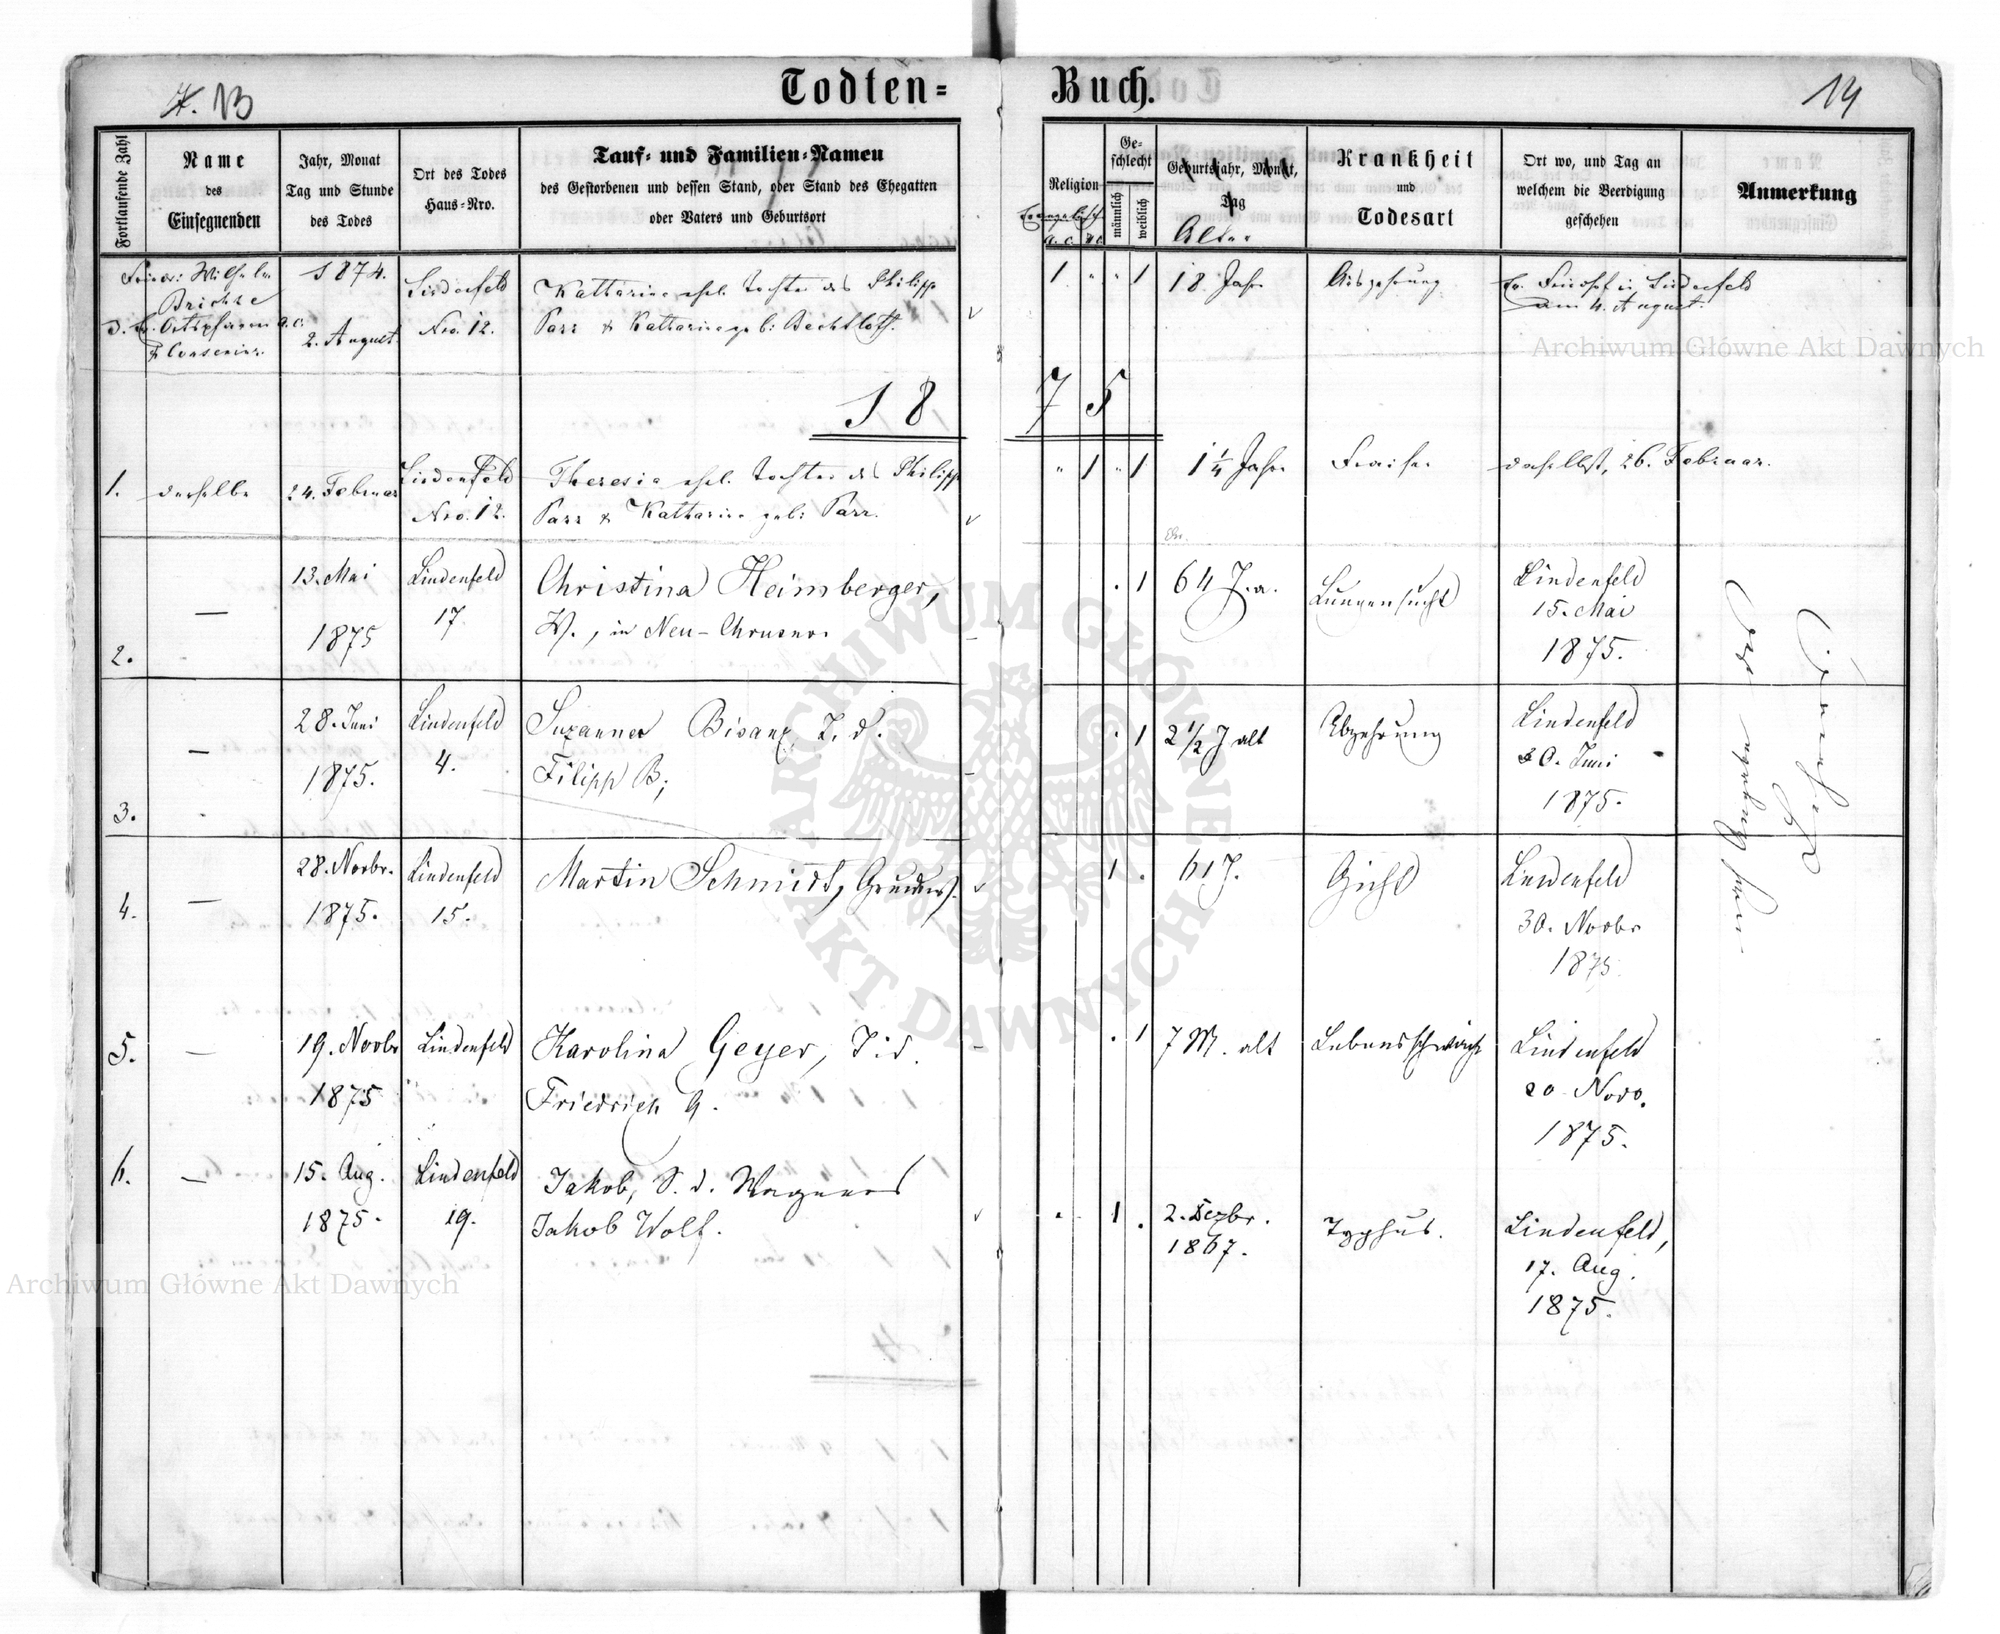 Todten- Buch.
13
14
Fortlaufende Zahl
Name
des
Einsegnenden
Jahr, Monat
Tag und Stunde
des Todes
Ort des Todes
Haus-Nro.
Tauf- und Familien-Namen
des Gestorbenen und dessen Stand, oder Stand des Ehegatten
oder Vaters und Geburtsort
Religion
Evangelisch
A.C. H.C.
Ge-
schlecht
männlich
weiblich
Geburtsjahr, Monat,
Tag
Alter
Krankheit
und
Todesart
Ort wo, und Tag an
welchem die Beerdigung
geschehen
Anmerkung
3.
Wilhelm
Ortspfarrer A.C.
1874.
2. August
Lindenfeld
Nro. 12.
Katharina ehel. Tochter des Philipp
Parr & Katharina geb: Bechtloff.
1 " " 1
18 Jahr
Abzehrung
Ev. Friedhof in Lindenfeld
am 4. August.
18 75
1.
derselbe
24. Februar
Lindenfeld
Nro. 12.
Theresia ehel. Tochter des Philipp
Parr & Katharina geb: Parr.
" 1 " 1
1 1/4 Jahr
Fraisen
daselbst, 26. Februar.
2.
—
13. Mai
1875
Lindenfeld
17.
Christina Heimberger,
W., in Neu-Chrusno.
. 1
64 J. a.
Lungensucht
Lindenfeld
15. Mai
1875.
3.
—
28. Juni
1875.
Lindenfeld
4.
Suzanna Bisanz, T. d.
Filipp B;
. 1
2 1/2 J alt
Abzehrung
Lindenfeld
30. Juni
1875.
4.
—
28. Novbr.
1875.
Lindenfeld
15.
Martin Schmidt, Grundw.
1 .
61 J.
Gicht
Lindenfeld
30. Novbr
1875
5.
—
19. Novbr
1875
Lindenfeld
Karolina Geyer, T. d.
Friedrich G.
. 1
7 M. alt
Lebensschwäche
Lindenfeld
20 Novb.
1875.
6.
—
15. Aug.
1875.
Lindenfeld
19.
Jakob, S. d. Wagners
Jakob Wolf.
1 .
2. Dezbr.
1867.
Typhus.
Lindenfeld,
17. Aug.
1875.
Archiwum Główne Akt Dawnych
ARCHIWUM GŁÓWNE
AKT DAWNYCH
Archiwum Główne Akt Dawnych